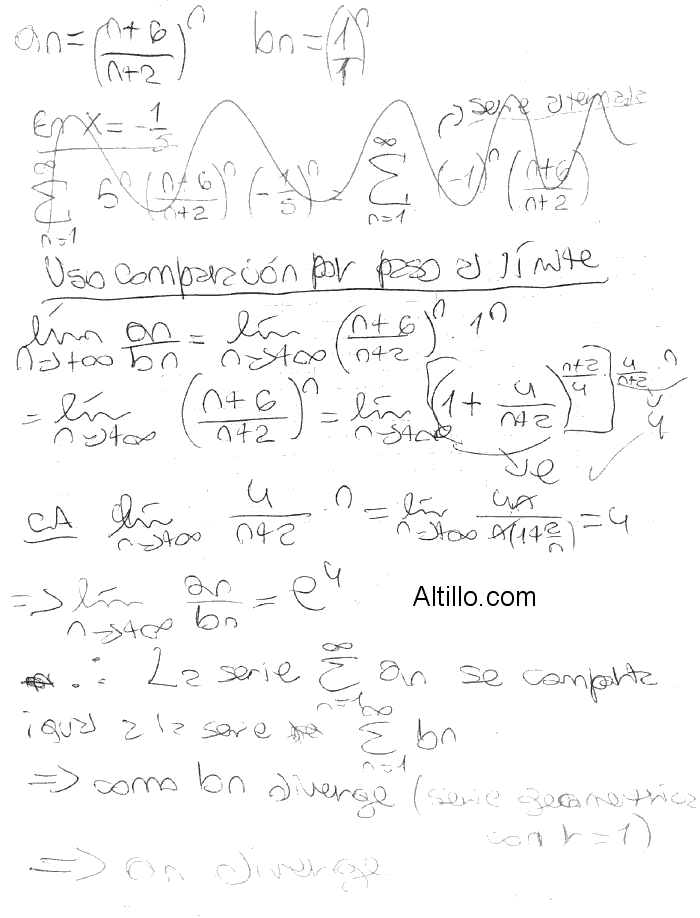 an = ((n+6)/(n+2))^n   bn = (1/1)^n
En x = -1/5   → serie alternada
∑_{n=1}^{∞} 5^n ((n+6)/(n+2))^n (-1/5)^n = ∑_{n=1}^{∞} (-1)^n ((n+6)/(n+2))
Uso comparación por paso al límite
lím_{n→+∞} an/bn = lím_{n→+∞} ((n+6)/(n+2))^n · 1^n
= lím_{n→+∞} ((n+6)/(n+2))^n = lím_{n→+∞} [(1 + 4/(n+2))^{(n+2)/4}]^{4/(n+2) · n}
↓e ↓4
CA lím_{n→+∞} 4/(n+2) · n = lím_{n→+∞} 4n/(n(1+2/n)) = 4
=> lím_{n→+∞} an/bn = e^4
Altillo.com
∴ La serie ∑_{n=1}^{∞} an se comporta
igual a la serie ∑_{n=1}^{∞} bn
=> como bn diverge (serie geometrica
con r=1)
=> an diverge